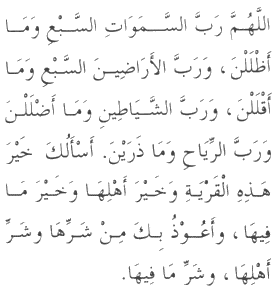 اللَّهُمَّ رَبَّ السَّـمَوَاتِ السَّبْعِ وَمَـا
أَظْلَلْنَ، وَرَبَّ الأَرَاضِيـنَ السَّبْعِ وَمَـا
أَقْلَلْنَ، وَرَبَّ الشَّيَاطِينِ وَمَا أَضْلَلْـنَ
وَرَبَّ الرِّيَاحِ وَمَا ذَرَيْنَ. أَسْأَلُكَ خَيْرَ
هَـذِهِ الْقَرْيَةِ وَخَيْرَ أَهْلِهَـا وَخَيْـرَ مَـا
فِيهَا، وَأَعُـوْذُ بِـكَ مِـنْ شَـرِّهَا وشَـرِّ
أَهْلِهَا، وشَرِّ مَا فِيهَا.